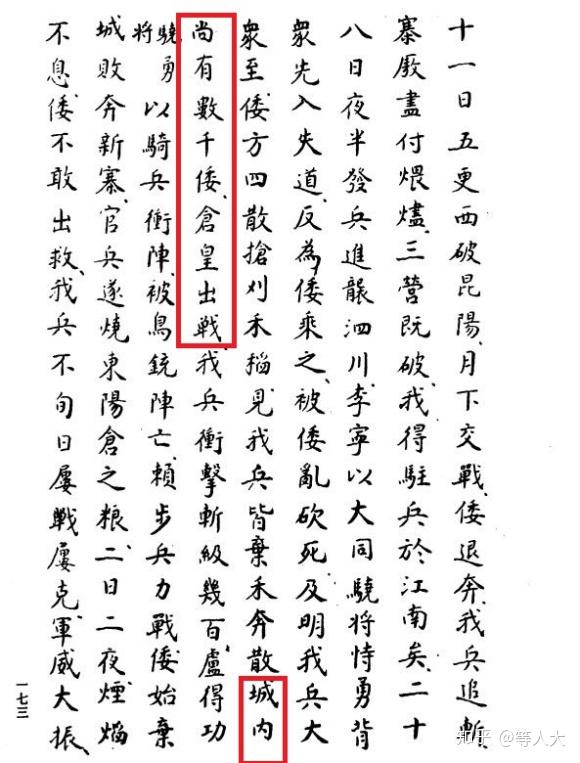 十一日五更西破昆陽、月下交戰、倭退奔、我兵追斬、
寨廒盡付煨燼、三營既破、我得駐兵於江南矣、二十
八日夜半發兵進襲泗川、李寧以大同驍將恃勇背
衆先入失道、反為倭乘之、被倭亂砍死、及明我兵大
衆至、倭方四散搶刈禾稻、見我兵皆棄禾奔散、城内
尚有數千倭、倉皇出戰、我兵衝擊斬級幾百、盧得功
驍勇將以騎兵衝陣、被鳥銃陣亡、賴步兵力戰、倭始棄
城敗奔新寨、官兵遂燒東陽倉之粮、二日二夜煙焰
不息、倭不敢出救、我兵不旬日屢戰屢克、軍威大振、
一七三
知乎 @等人大